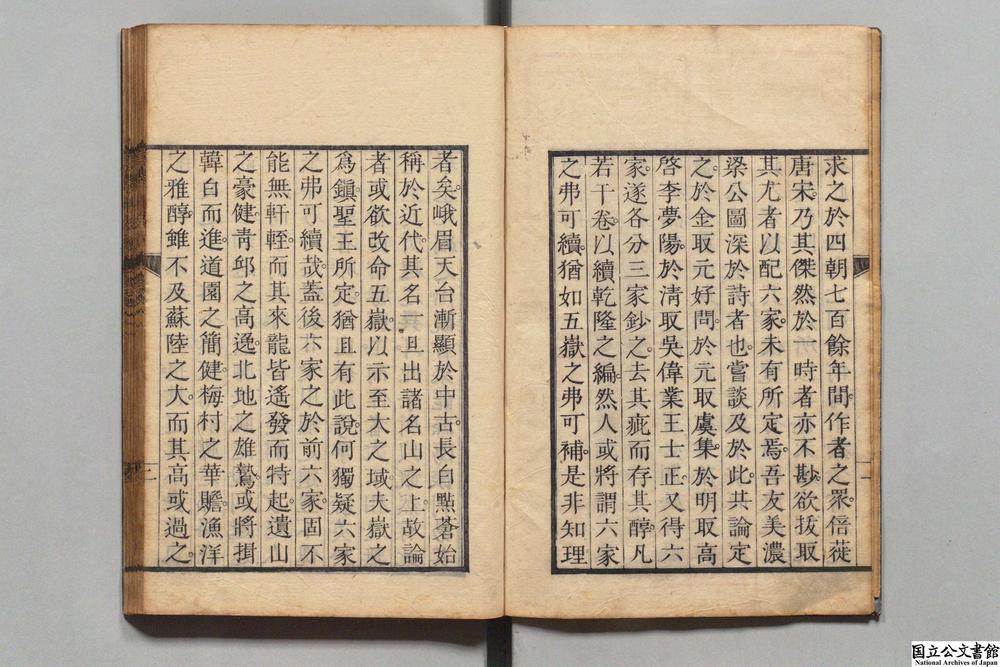 求之於四朝七百餘年間。作者之眾倍蓰
唐宋。乃其傑然於一時者亦不尠。欲拔取
其尤者以配六家。未有所定焉。吾友美濃
梁公圖深於詩者也。嘗談及於此。共論定
之。於金取元好問。於元取虞集。於明取高
啓李夢陽。於淸取吳偉業王士正。又得六
家。遂各分三家鈔之。去其疵而存其醇。凡
若干卷。以續乾隆之編。然人或將謂六家
之弗可續。猶如五嶽之弗可補。是非知理
者矣。峨眉天台漸顯於中古。長白點蒼始
稱於近代。其名一旦出諸名山之上。故論
者或欲改命五嶽。以示至大之域。夫嶽之
爲鎭。聖王所定。猶且有此說。何獨疑六家
之弗可續哉。蓋後六家之於前六家。固不
能無軒輊。而其來龍皆遙發而特起。遺山
之豪健。靑邱之高逸。北地之雄鷙。或將揖
韓白而進。道園之簡健。梅村之華贍。漁洋
之雅醇。雖不及蘇陸之大。而其高或過之。
二
一
国立公文書館
National Archives of Japan